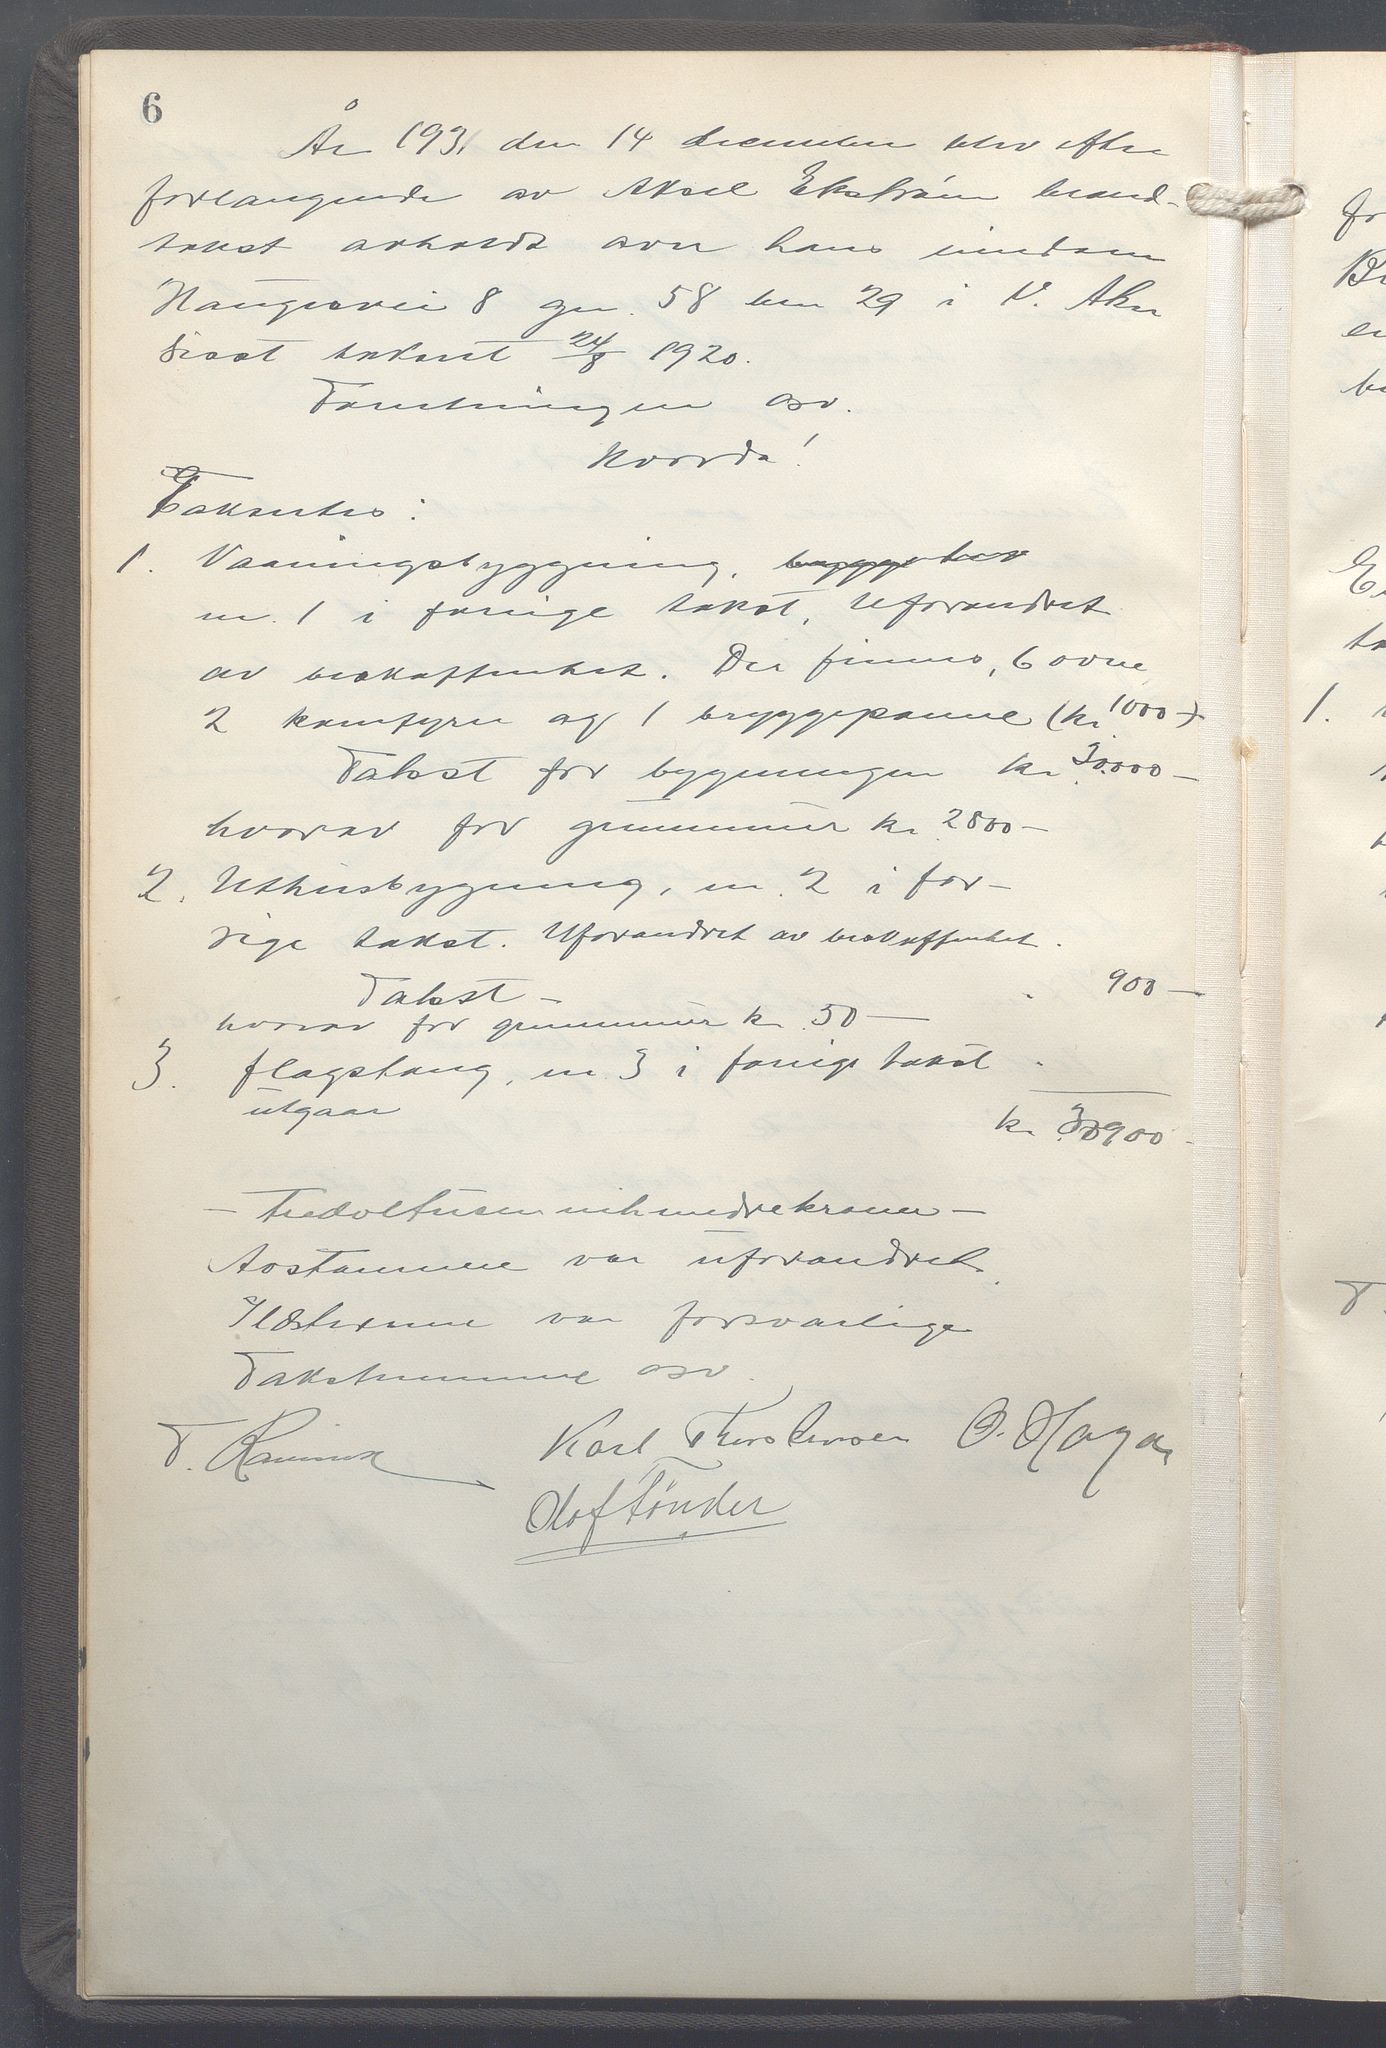 6
År 1931 den 14 december blev efter
forlangende av Aksel Ekstrøm brand-
takst avholdt over hans eiendom
Haugesvei 8 gn. 58 bn 29 i V. Aker
sisst takert 24/8 1920.
Forretningen osv.
Hvorda!
Taksertes:
1. Vaaningsbygning, bygget av
nr. 1 i forrige takst. Uforandret
av beskaffenhet. Der finnes 6 ovne
2 komfyrer og 1 bryggepanne (kr 1000-)
Takst for bygningen kr 30.000-
hvorav for grunnmur kr. 2800-
2. Uthusbygning, nr. 2 i for-
rige takst. Uforandret av beskaffenhet.
Takst - 900-
hvorav for grunnmur kr. 50-
3. flagstang, nr 3 i forrige takst
utgaar
kr 30900-
- Tredvetusennihundrekroner -
Avstannene var uforandret.
Ildstedene var forsvarlige
Takstmennene osv.
Karl Thorstensen O. Hagen
Olaf Tønder
fr
er
be
E
ta
1.
T.